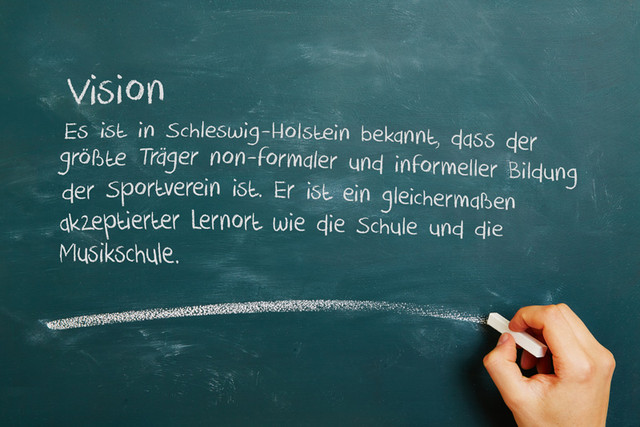 Vision
Es ist in Schleswig-Holstein bekannt, dass der
größte Träger non-formaler und informeller Bildung
der Sportverein ist. Er ist ein gleichermaßen
akzeptierter Lernort wie die Schule und die
Musikschule.